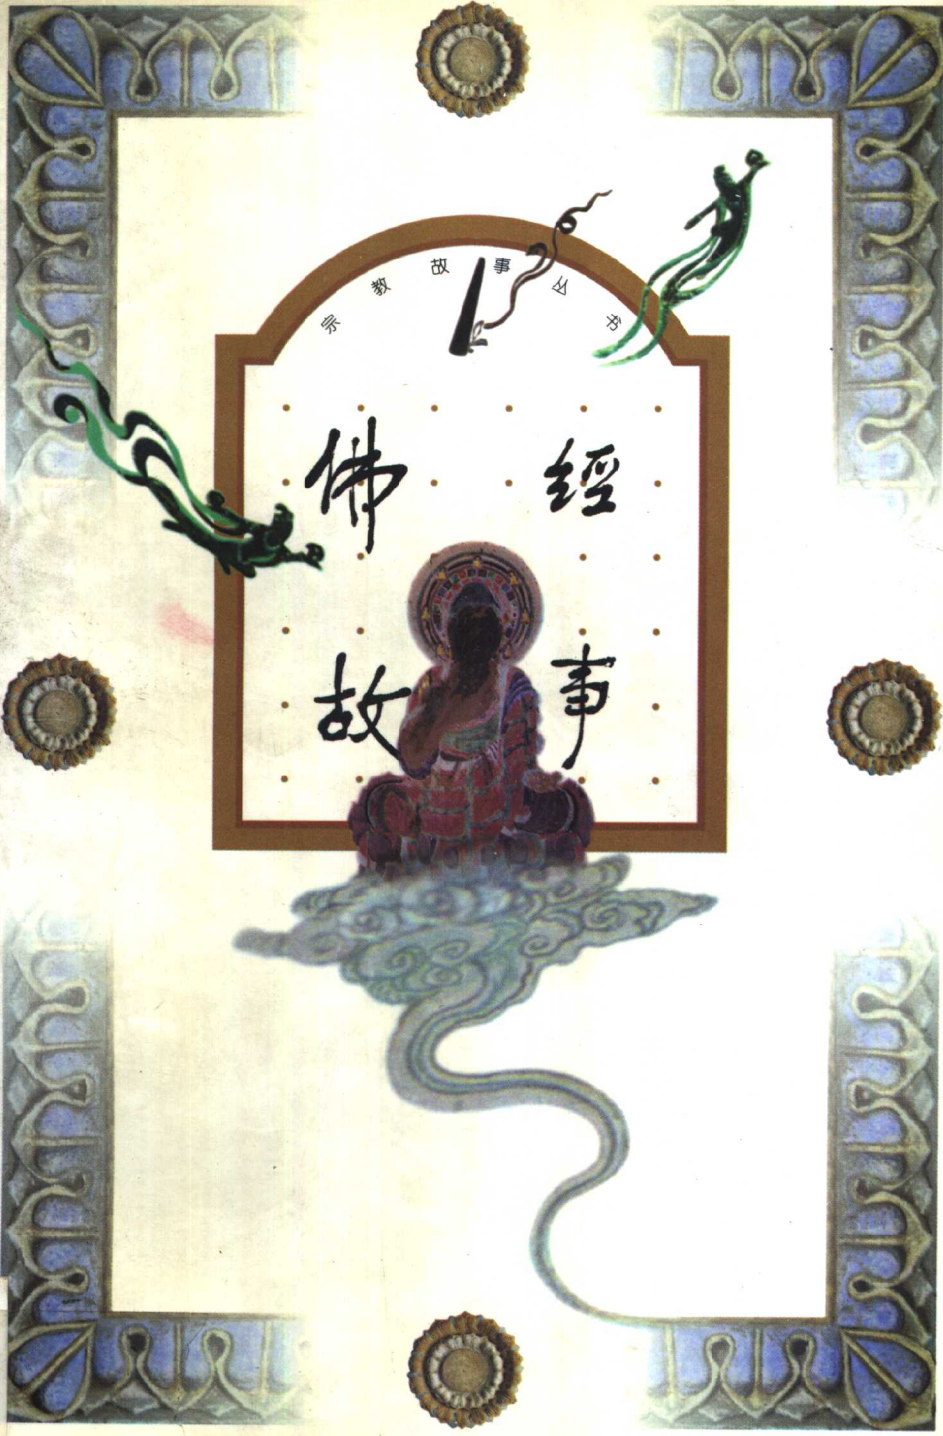 宗教故事丛书
佛經
故事